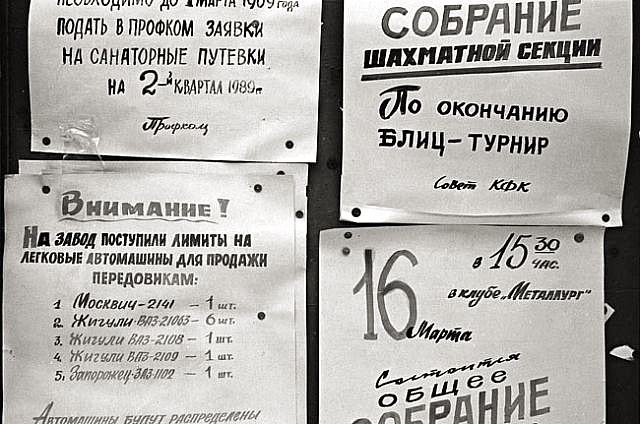 НЕОБХОДИМО ДО 1 МАРТА 1989 года
ПОДАТЬ В ПРОФКОМ ЗАЯВКИ
НА САНАТОРНЫЕ ПУТЕВКИ
НА 2-й КВАРТАЛ 1989 г.
Профком
СОБРАНИЕ
ШАХМАТНОЙ СЕКЦИИ
По ОКОНЧАНИЮ
БЛИЦ-ТУРНИР
Совет КФК
ВНИМАНИЕ!
НА ЗАВОД ПОСТУПИЛИ ЛИМИТЫ НА
ЛЕГКОВЫЕ АВТОМАШИНЫ ДЛЯ ПРОДАЖИ
ПЕРЕДОВИКАМ:
1 Москвич-2141 – 1 шт.
2. Жигули ВАЗ-21063 – 6 шт.
3. Жигули ВАЗ-2108 – 1 шт.
4. Жигули ВАЗ-2109 – 1 шт.
5. Запорожец-ЗАЗ-1102 – 1 шт.
АВТОМАШИНЫ БУДУТ РАСПРЕДЕЛЕНЫ
16 Марта
в 15 30 ЧАС.
в клубе „МЕТАЛЛУРГ"
Состоится
ОБЩЕЕ
СОБРАНИЕ